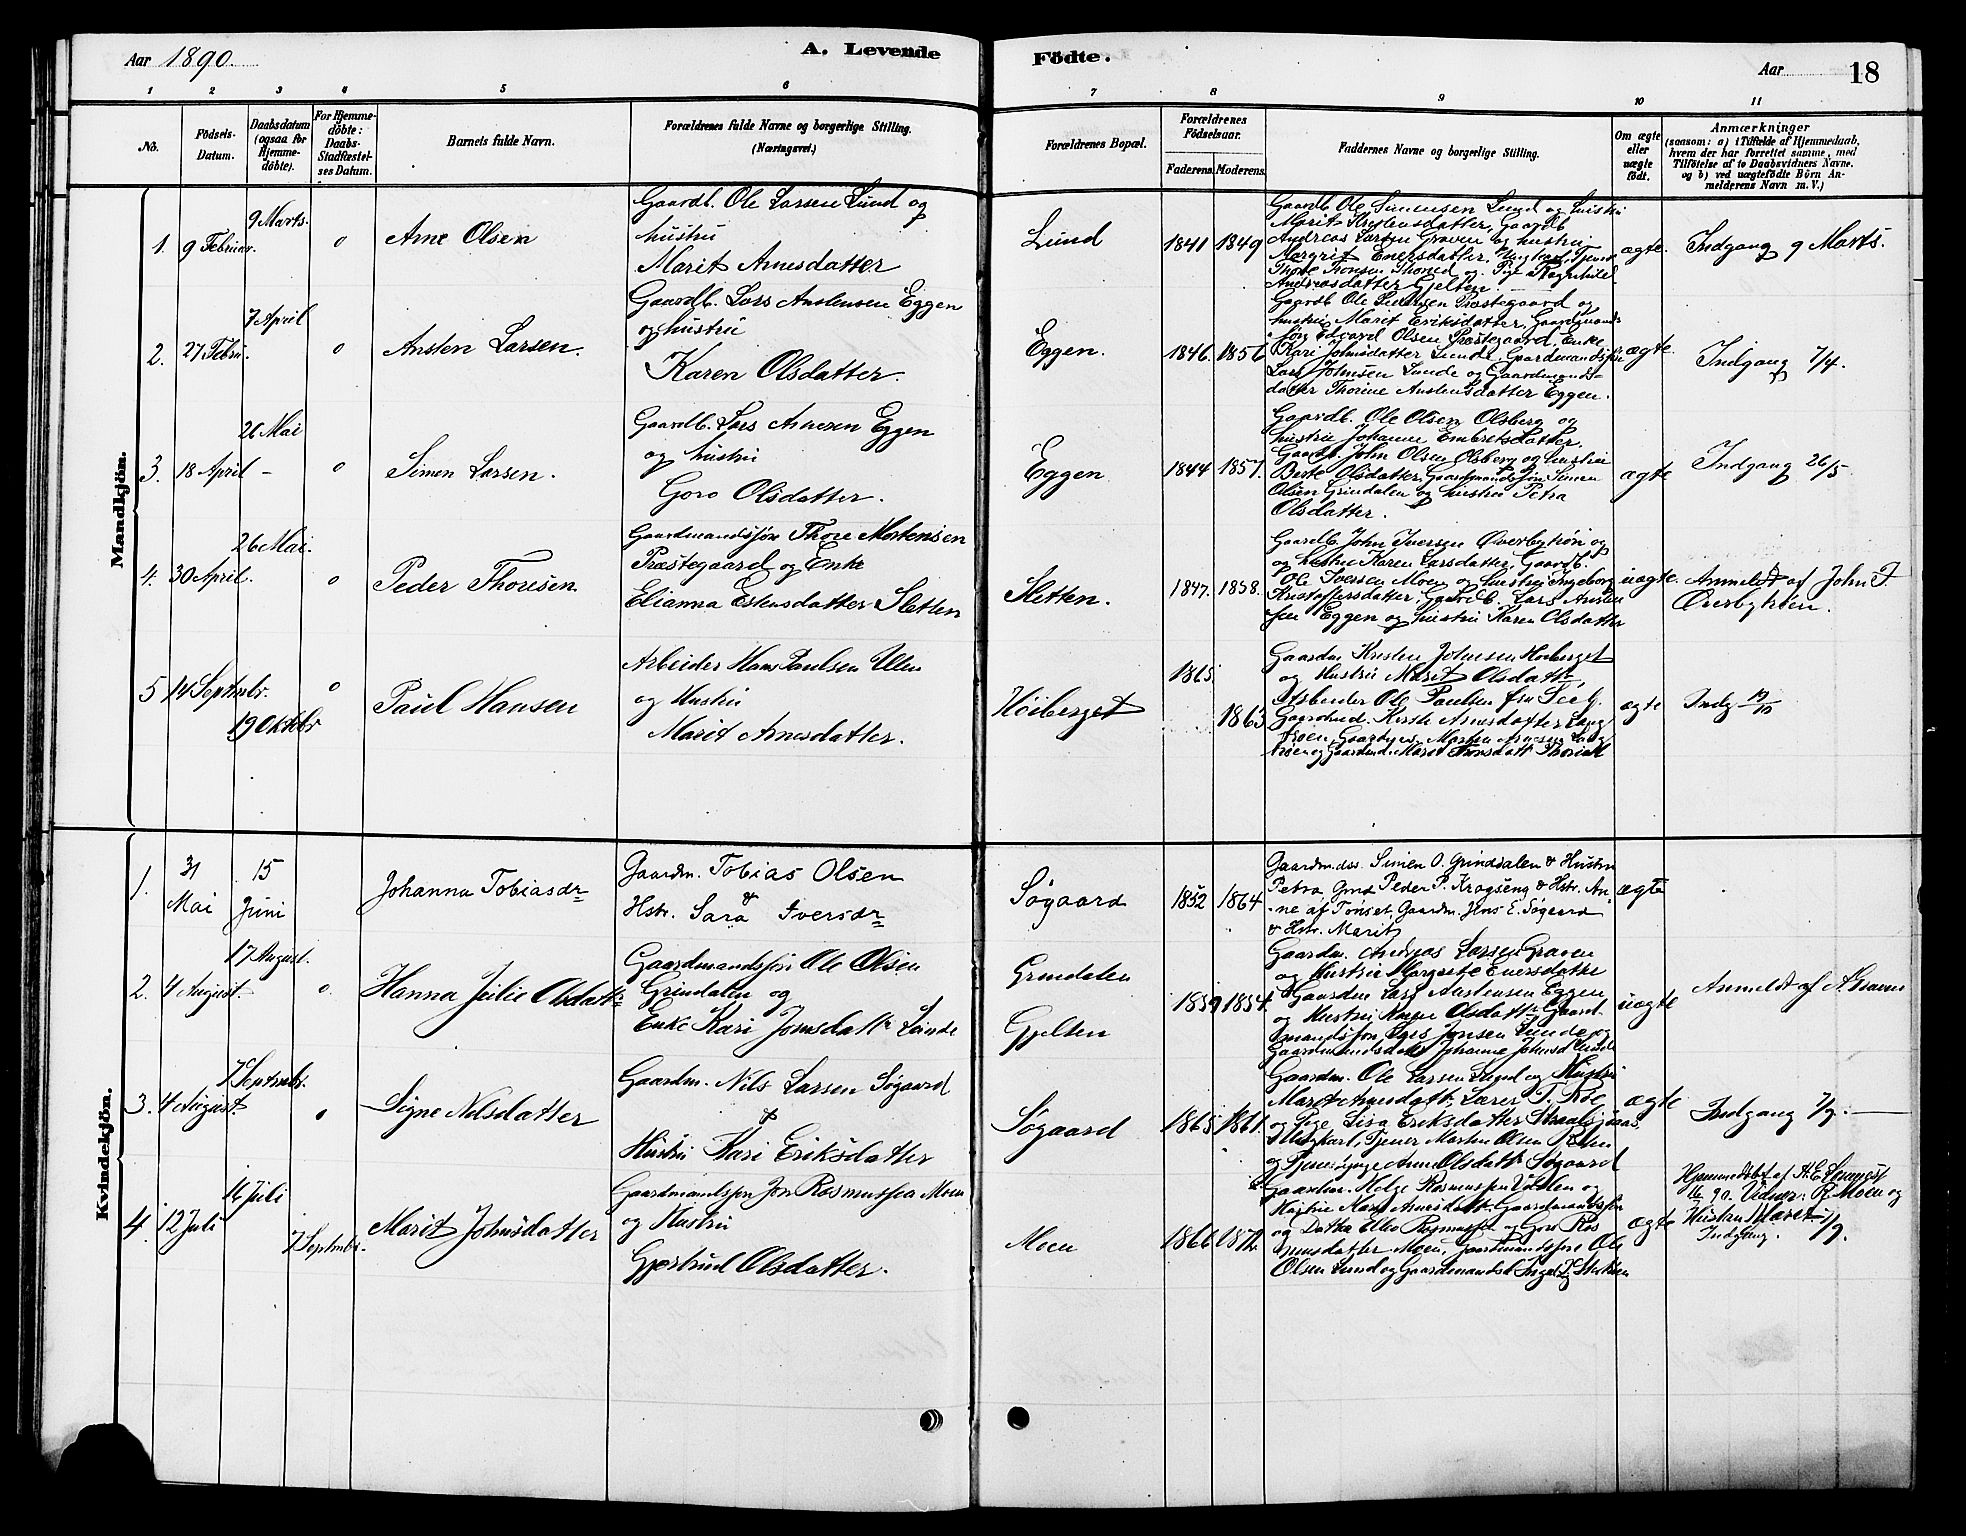 Aar 1890.
A. Levende
Födte.
Aar
18
1 2 3 4 5 6
7 8 9 10 11
No.
Födsels-
Datum.
Daabsdatum
(ogsaa for
Hjemme-
döbte).
For Hjemme-
döbte:
Daabs-
Stadfæstel-
ses Datum.
Barnets fulde Navn.
Forældrenes fulde Navne og borgerlige Stilling.
(Næringsvei.)
Forældrenes Bopæl.
Forældrenes
Födselsaar.
Faderens.
Moderens.
Faddernes Navne og borgerlige Stilling.
Om ægte
eller
uægte
födt.
Anmærkninger
(saasom: a) i Tilfælde af Hjemmedaab,
hvem der har forrettet samme, med
Tilföielse af to Daabsvidners Navne.
og b) ved uægtefödte Börn An-
melderens Navn m. V.)
Mandkjön.
1.
9 Februar.
9 Marts.
0
Arne Olsen
Gaardb. Ole Larsen Lund og
hustru
Marit Arnesdatter
Lund
1841
1849
Gaardb. Ole Simensen Lund og hustru
Marit Kristensdatter, Gaardb
Andreas Larsen Graven og hustru
Margrit Enersdatter, Ungkarl Tjener
Thore Tronsen Thoned og Pige Ragnhild
Andreasdatter Gjelten.
ægte.
Indgang 9 Marts.
2.
27 Febru.
7 April
0
Ansten Larsen.
Gaardb. Lars Anstensen Eggen
og hustru
Karen Olsdatter.
Eggen.
1846.
1856
Gaardb Ole Præstegaard og
hustru Marit Eriksdatter, Gaardmands-
søn Edvard Olsen Præstegaard, Enke
Kari Johnsdatter Lunde, Gaardmandssøn
Lars Johnsen Lunde og Gaardmands-
datter Thorine Anstensdatter Eggen.
ægte.
Indgang 7/4.
3.
18 April
26 Mai
-
0
Simen Larsen.
Gaardb. Lars Arnesen Eggen
og hustru
Goro Olsdatter.
Eggen
1844
1857.
Gaardb. Ole Olsen Olsberg og
hustru Johanne Embretsdatter,
Gaardb. John Olsen Olsberg og hustru
Berte Olsdatter, Gaardmandssøn Simen
Olsen Grindalen og hustru Petra
Olsdatter.
ægte
Indgang 26/5
4.
30 April.
26 Mai.
0
Peder Thoresen.
Gaardmandssøn Thore Mortensen
Præstegaard og Enke
Elianna Estensdatter Sletten
Sletten.
1847.
1858.
Gaardb. John Iversen Øverbytrøn og
og hustru Karen Larsdatter, Gaardb.
Ole Iversen Moen og hustru Ingeborg
Kristofersdatter, Gaardb. Lars Ansten
sen Eggen og hustru Karen Olsdatter
uægte.
Anmeldt af John I.
Øverbytrøen.
5
14 Septmbr.
19 Oktbr
0
Paul Hansen
Arbeider Hans Paulsen Ulen
og Hustru
Marit Arnesdatter.
Høiberget
1865.
1863
Gaardm Kristen Johnsen Høiberget
og Hustru Marit Olsdattr,
Arbeider Ole Paulsen fra
Gaardmd. Kirsti Arnesdatter Lang
troen, Gaardgut Morten Arnesen Lang
troen og Gaardmd. Marit Tronsdatt
ægte
Indg 19/10
Kvindekjön.
1.
31
Mai
15
Juni
Johanna Tobiasdr
Gaardm. Tobias Olsen
&
Hstr. Sara Iversdr
Søgaard
1852
1864
Gaardm.dss. Simen O. Grinddalen & Hustru
Petra, Gmd Peder P. Kragseng & Hstr. An-
ne af Tønset, Gaardm. Jens E. Søgaard
& Hstr. Marit
ægte
2.
4 August.
17 August.
0.
Hanna Julie Olsdattr
Gaardmandssøn Ole Olsen
Grindalen og
Enke Kari Jonsdattr Lunde
Grindalen
Gjelten
1859
1854.
Gaardm. Andreas Larsen Graven
og Hustru Margrete Enersdatter
Gaardm Lars Anstensen Eggen
og Hustru Karen Olsdattr Gaard
mandssøn Lars Jonsen Lunde og
Gaardmandsdatt Johanne Johnsd Lunde
uægte
Anmeldt af A. Graven
3.
4 August.
7 Septmbr.
0
Signe Nilsdatter
Gaardm. Nils Larsen Søgaard
&
Hustru Kari Eriksdatter
Søgaard
1865
1861.
Gaardm. Ole Larsen Lund og Hustru
Marit Arnesdatt, Lærer T. Røe
og Pige Lisa Eriksdatter Straalsjøaas,
Ungkarl, Tjener Martin Olsen
og Tjenestepige Anne Olsdattr Søgaard
ægte
Indgang 7/9.
4.
12 Juli
16 Juli
7 Septmbr.
Marit Johnsdatter
Gaardmandssøn Jon Rasmussen Moen
og Hustru
Gjertrud Olsdatter.
Moen
1866
187
Gaardm. Helge Rasmussen og
Hustru Kari Arnesdatt. Gaardmandssøn
og Datter Rasmussen og Goro Ras
musdatter Moen, Gaardmandssøn Ole
Olsen Lund og Gaardmandsd.
ægte
Hjemmedøbt af
90. Vidner: R. Moen og
Hustru Marit
Indgang. 7/9.